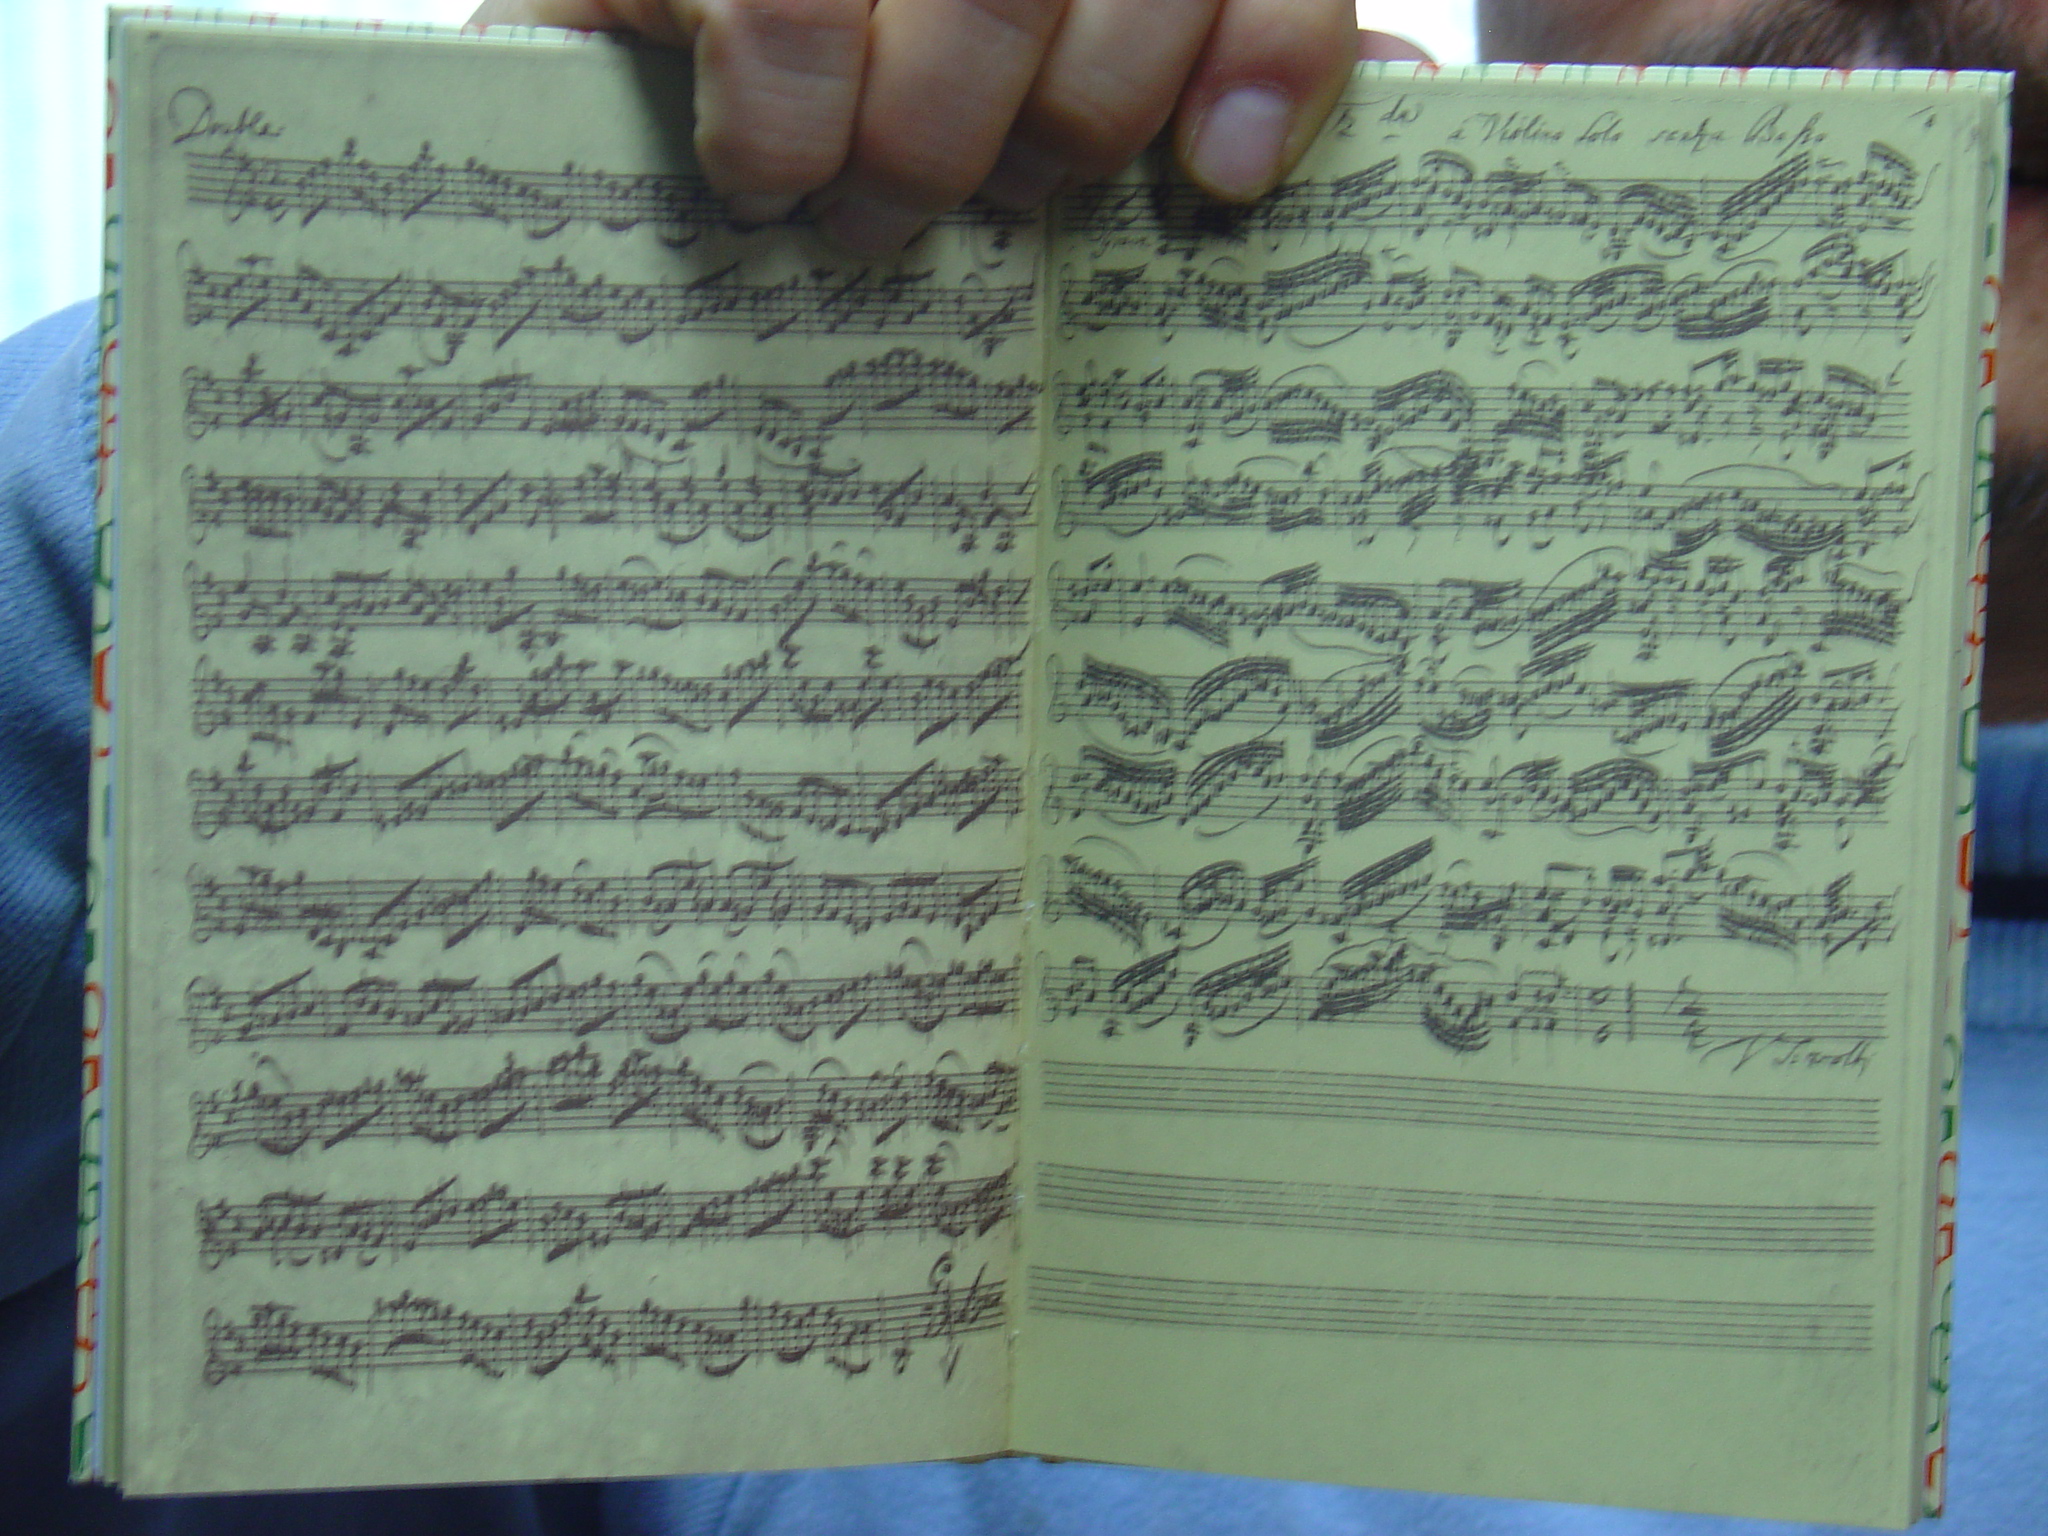 Double.
2 da à Violino Solo senza Basso
V. S. volti